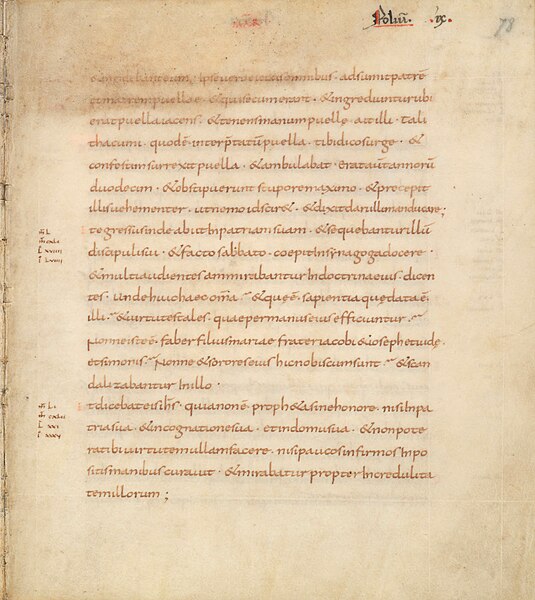 Foliū .ix.
78
& inridebant eum. Ipse uero eiectis omnibus. adsumit patrē
et matrem puellae. & qui secum erant. & ingrediuntur ubi
erat puella iacens. & tenens manum puelle. ait illi. tali
tha cumi. quod ē interp̄tatū puella. tibi dico surge. &
confestim surrexit puella. & ambulabat. erat autē annorū
duodecim. & obstipuerunt stupore maximo. & precepit
illis uehementer. ut nemo id scir&. & dixit dari illi manducare;
Et egressus inde abiit in patriam suam. & sequebantur illū
discipuli sui. & facto sabbato. coepit In synagoga docere.
& multi audientes ammirabantur In doctrina eius dicen
tes. unde huic haec om̄a. & que ē. sapientia que data ē
illi. & uirtutes tales. quae per manus eius efficiuntur.
Nonne iste ē. faber filius mariae frater iacobi & ioseph et iude.
et simonis. Nonne & sorores eius hic nobiscum sunt. & scan
dalizabantur In illo.
Et dicebat eis ih̄s. quia non ē. proph&a sine honore. nisi In pa
tria sua. & In cognatione sua. et in domu sua. & non pote
rat ibi uirtutem ullam facere. nisi paucos infirmos Inpo
sitis manibus curauit. & mirabatur propter Incredulita
tem illorum;